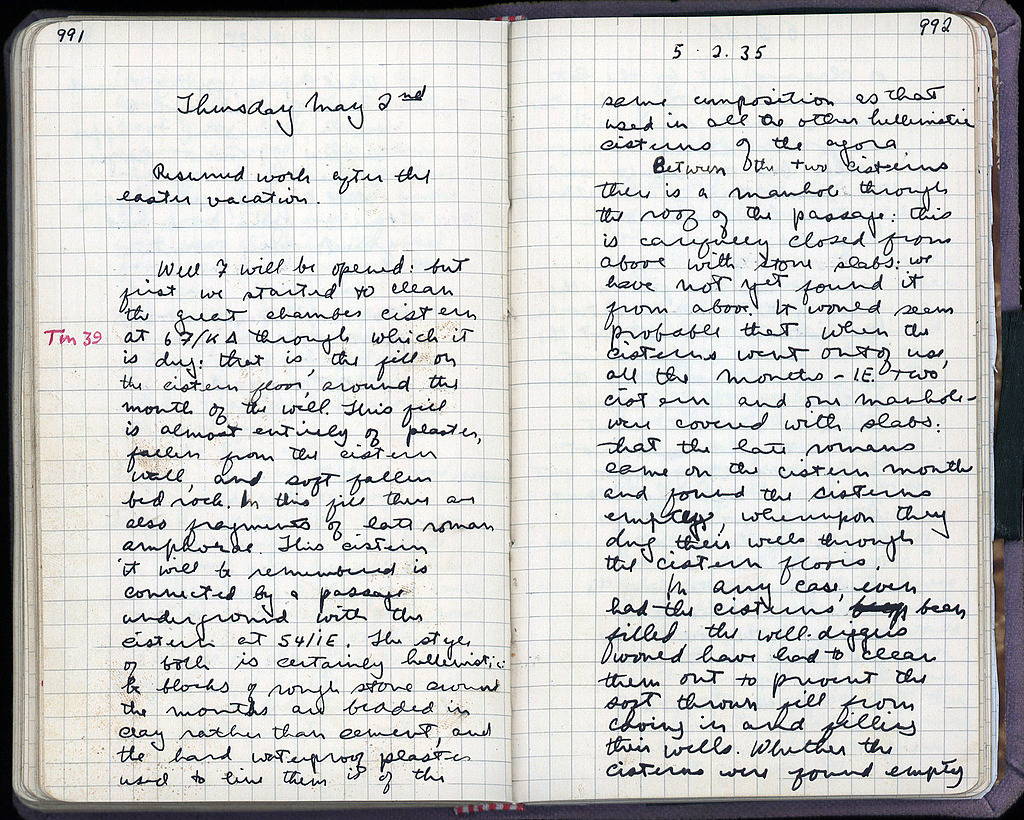 991
Thursday May 2nd
Resumed work after the
easter vacation.
Well 7 will be opened: but
first we started to clean
the great chamber cistern
Tm 39
at 67/ΚΔ through which it
is dug: that is, the fill on
the cistern floor, around the
mouth of the well. This fill
is almost entirely of plaster,
fallen from the cistern
wall, and soft fallen
bed rock. In this fill there are
also fragments of late roman
amphorae. This cistern
it will be remembered is
connected by a passage
underground with the
cistern at 54/ΙΕ. The style
of both is certainly hellenistic:
the blocks of rough stone around
the mouths are bedded in
clay rather than cement, and
the hard waterproof plaster
used to line them is of the
992
5 2. 35
same composition as that
used in all the other hellenistic
cisterns of the agora.
Between the two cisterns
there is a manhole through
the roof of the passage: this
is carefully closed from
above with stone slabs: we
have not yet found it
from above. It would seem
probable that when the
cisterns went out of use,
all the mouths – I.E. two
cistern and one manhole –
were covered with slabs:
that the late romans
came on the cistern mouths
and found the cisterns
empty, whereupon they
dug their wells through
the cistern floors.
In any case, even
had the cisterns been
filled the well-diggers
would have had to clean
them out to prevent the
soft thrown fill from
caving in and filling
their wells. Whether the
cisterns were found empty